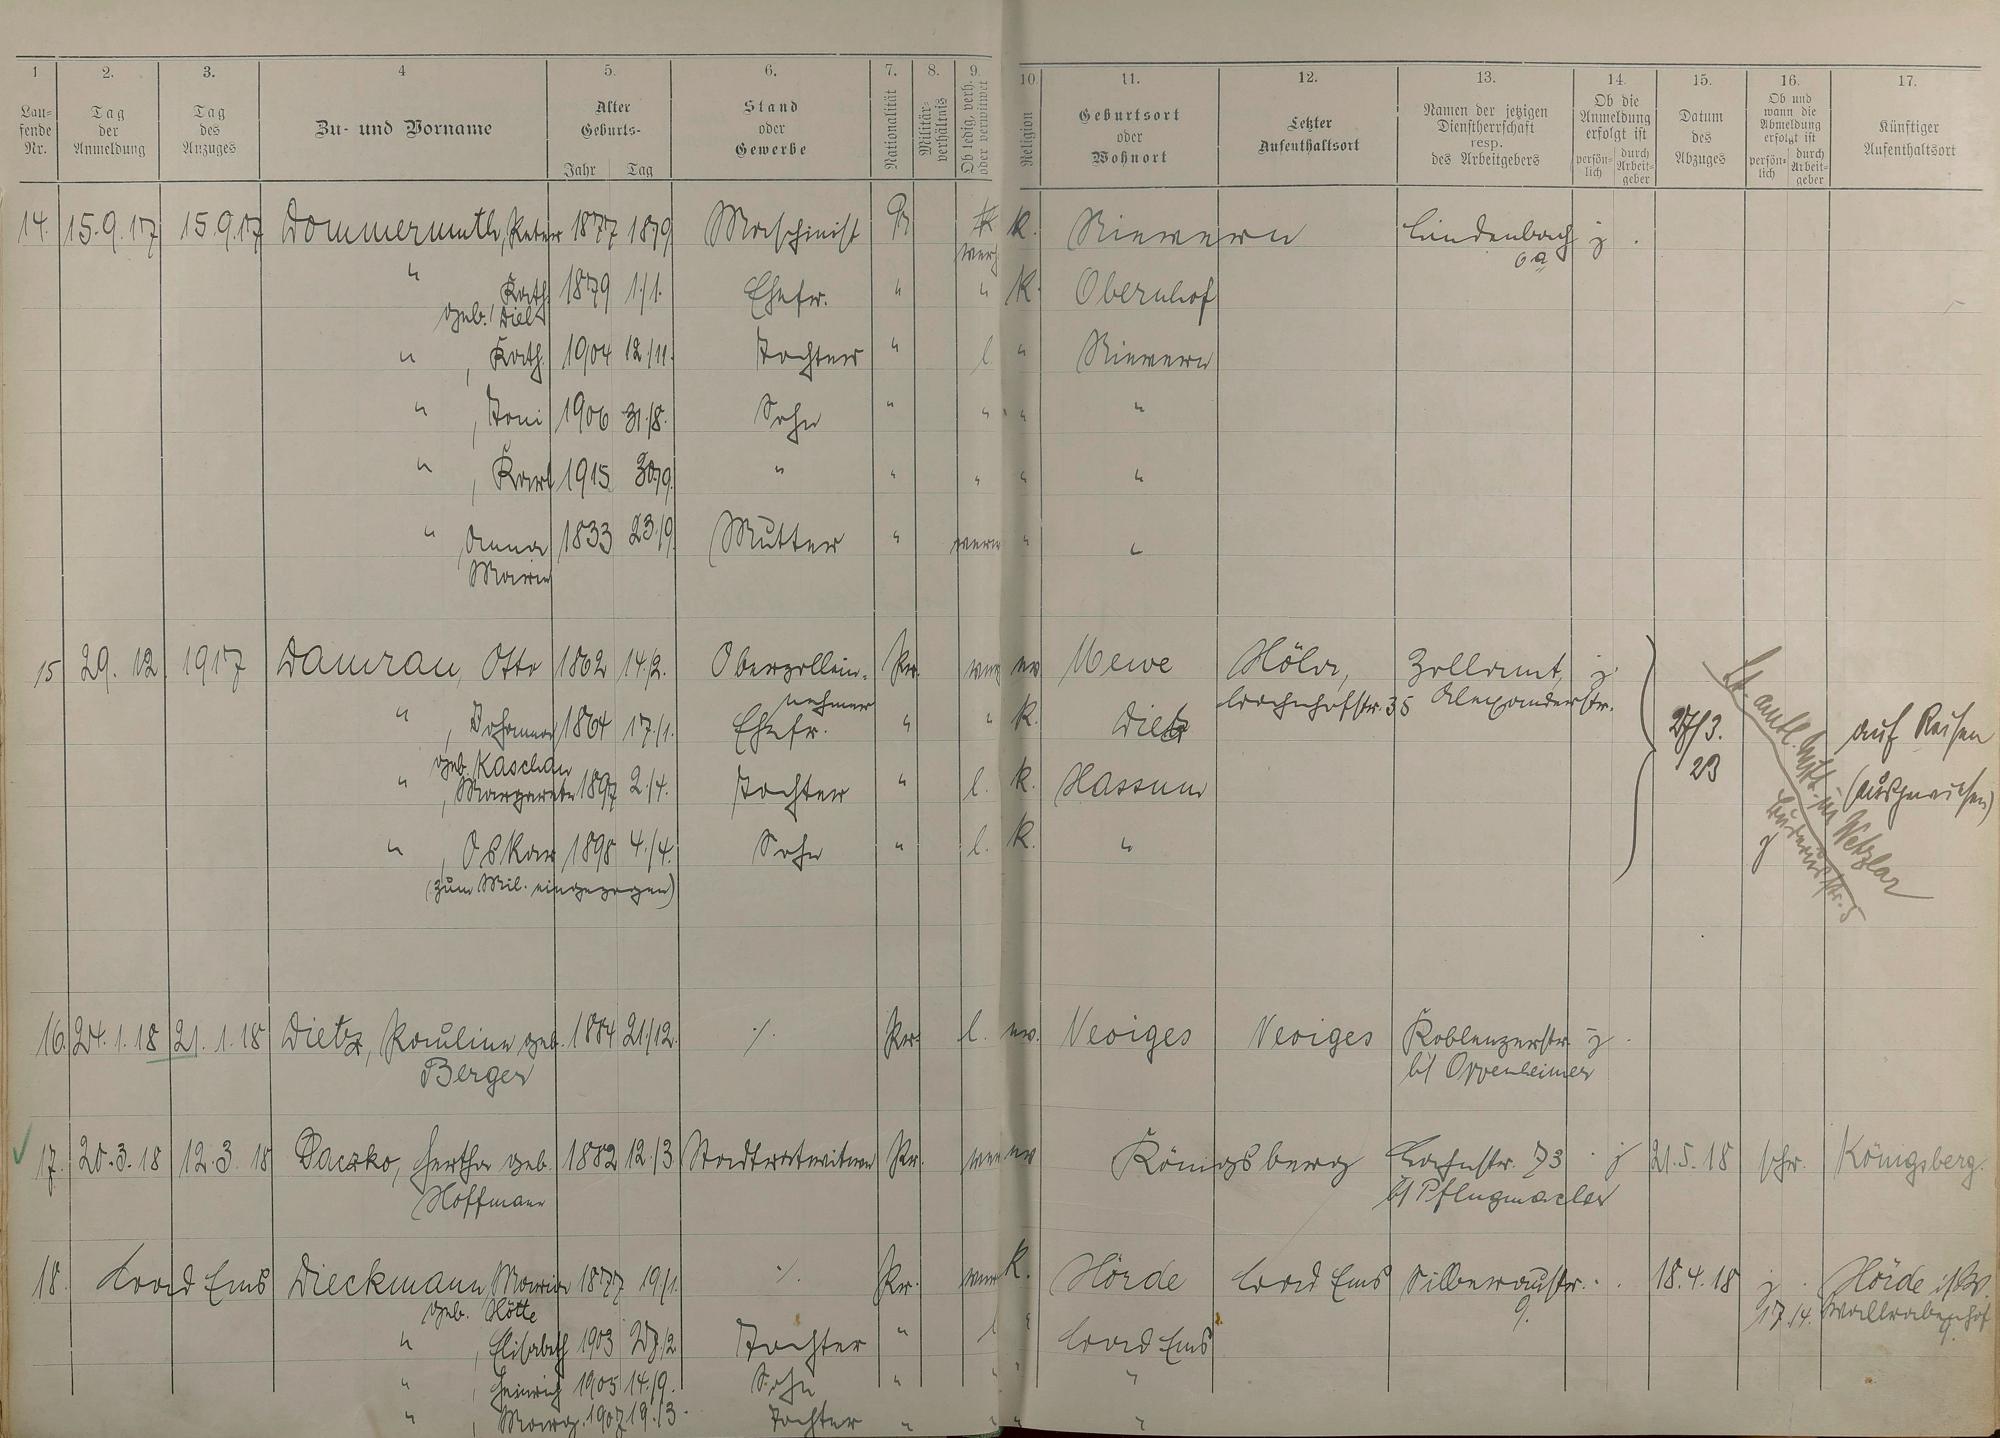 1 2. 3. 4 5. 6. 7. 8. 9. 10. 11. 12. 13. 14. 15. 16. 17.
Laufende Nr.
Tag der Anmeldung
Tag des Anzuges
Zu- und Vorname
Alter
Geburts-
Jahr Tag
Stand oder Gewerbe
Nationalität
Militärverhältnis
Ob ledig, verh. oder verwitwet
Religion
Geburtsort oder Wohnort
Letzter Aufenthaltsort
Namen der jetzigen Dienstherrschaft resp. des Arbeitgebers
Ob die Anmeldung erfolgt ist
persönlich durch Arbeitgeber
Datum des Abzuges
Ob und wann die Abmeldung erfolgt ist
persönlich durch Arbeitgeber
Künftiger Aufenthaltsort
14. 15.9.17 15.9.17 Dommermuth, Peter 1877 Maschinist Pr k. Nievern Lindenbach j
" Kath. 1879 1./1. Ehefr. " " k. Obernhof
geb. Diel
" , Kath. 1904 12./11. Tochter " l. " Nievern
" , Toni 1906 31./8. Sohn " " " "
" , Karl 1915 30/9. " " " " "
" Anna 1833 23./9 Mutter " verw " "
Maria
15 29. 12 1917 Damrau, Otto 1862 14./2. Oberzollein- Pr. ev Mewe Köln, Zollamt, j
nehmer Bahnhofstr. 35 Alexanderstr.
" , Johanna 1864 17./1. Ehefr. " " k. Diez 27/3. auf Reisen
geb. Kaschau 23
" , Margarete 1897 2./4. Tochter " l. k. Hassum (ausgewiesen)
" , Oskar 1898 4./4. Sohn " l. k. " j
(zum Mil. eingezogen)
in Wetzlar
16. 24.1.18 21.1.18 Dietz, Pauline geb. 1884 21./12. ·/. Pr. l. ev. Neviges Neviges Koblenzerstr. j
Berger b/ Oppenheimer
17. 20.3.18 12.3.18 Daczko, Hertha geb. 1882 12./3 Stadtratwitwe Pr. ev Königsberg Bahnstr. 73 j 21.5.18 schr. Königsberg.
Hoffmann b/ Pflugmacher
18. Bad Ems Dieckmann, Maria 1877 19./1. ·/. Pr. k. Hörde Bad Ems Silberaustr. 18.4.18 j Hörde i/W.
geb. Hötte 9. 17./4. Wallrabenhof 9.
" , Elisabeth 1903 27./2 Tochter " l " Bad Ems
" , Heinrich 1905 14./9. Sohn " " " "
" , Marg. 1907 19./3. Tochter " " " "